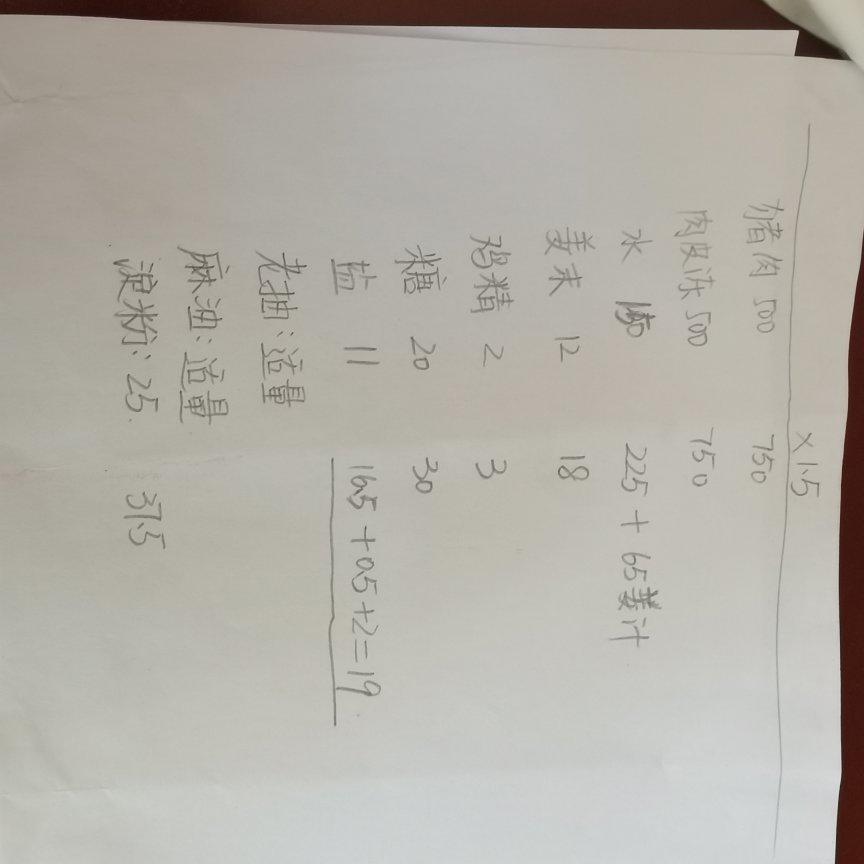 ×1.5
猪肉 500 750
肉皮冻 500 750
水 150 225 + 65姜汁
姜末 12 18
鸡精 2 3
糖 20 30
盐 11 16.5 + 0.5 + 2 = 19
老抽：适量
麻油：适量
淀粉：25. 37.5